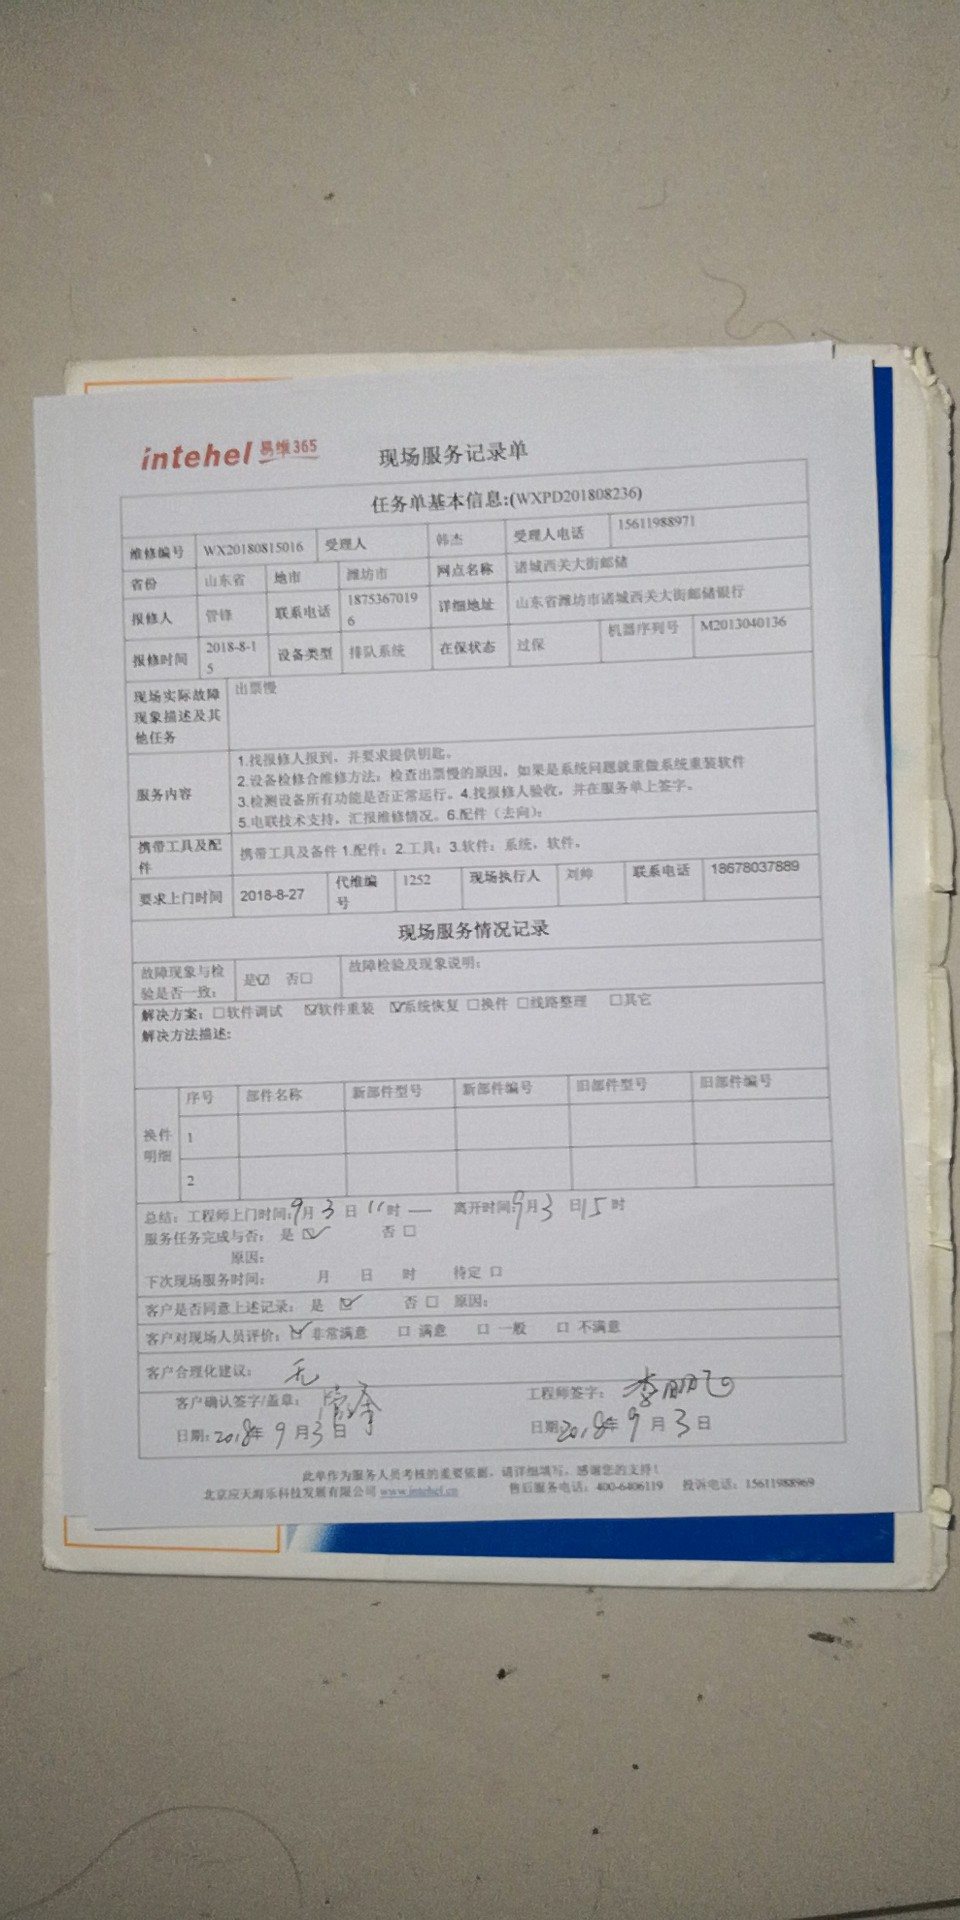 intehel 易维365 现场服务记录单
任务单基本信息:(WXPD201808236)
维修编号 WX20180815016 受理人 韩杰 受理人电话 15611988971
省份 山东省 地市 潍坊市 网点名称 诸城西关大街邮储
报修人 管锋 联系电话 1875367019 详细地址 山东省潍坊市诸城西关大街邮储银行
6
报修时间 2018-8-1 设备类型 排队系统 在保状态 过保 机器序列号 M2013040136
5
现场实际故障 出票慢
现象描述及其
他任务
服务内容 1.找报修人报到，并要求提供钥匙。
2.设备检修合维修方法：检查出票慢的原因，如果是系统问题就重做系统重装软件
3.检测设备所有功能是否正常运行。4.找报修人验收，并在服务单上签字。
5.电联技术支持，汇报维修情况。6.配件（去向）：
携带工具及配 携带工具及备件 1.配件：2.工具：3.软件：系统，软件。
件
要求上门时间 2018-8-27 代维编 1252 现场执行人 刘帅 联系电话 18678037889
号
现场服务情况记录
故障现象与检 是☑ 否☐ 故障检验及现象说明：
验是否一致：
解决方案：☐软件调试 ☑软件重装 ☑系统恢复 ☐换件 ☐线路整理 ☐其它
解决方法描述:
换件 序号 部件名称 新部件型号 新部件编号 旧部件型号 旧部件编号
明细 1
2
总结：工程师上门时间:9月3日11时— 离开时间:9月3日15时
服务任务完成与否： 是 ☑ 否 ☐
原因：
下次现场服务时间： 月 日 时 待定 ☐
客户是否同意上述记录： 是 ☑ 否 ☐ 原因：
客户对现场人员评价：☑ 非常满意 ☐ 满意 ☐ 一般 ☐ 不满意
客户合理化建议： 无
客户确认签字/盖章： 工程师签字： 李鹏飞
日期:2018年9月3日 日期:2018年9月3日
此单作为服务人员考核的重要依据，请详细填写，感谢您的支持！
北京应天海乐科技发展有限公司 www.intehel.cn 售后服务电话：400-6406119 投诉电话：15611988969